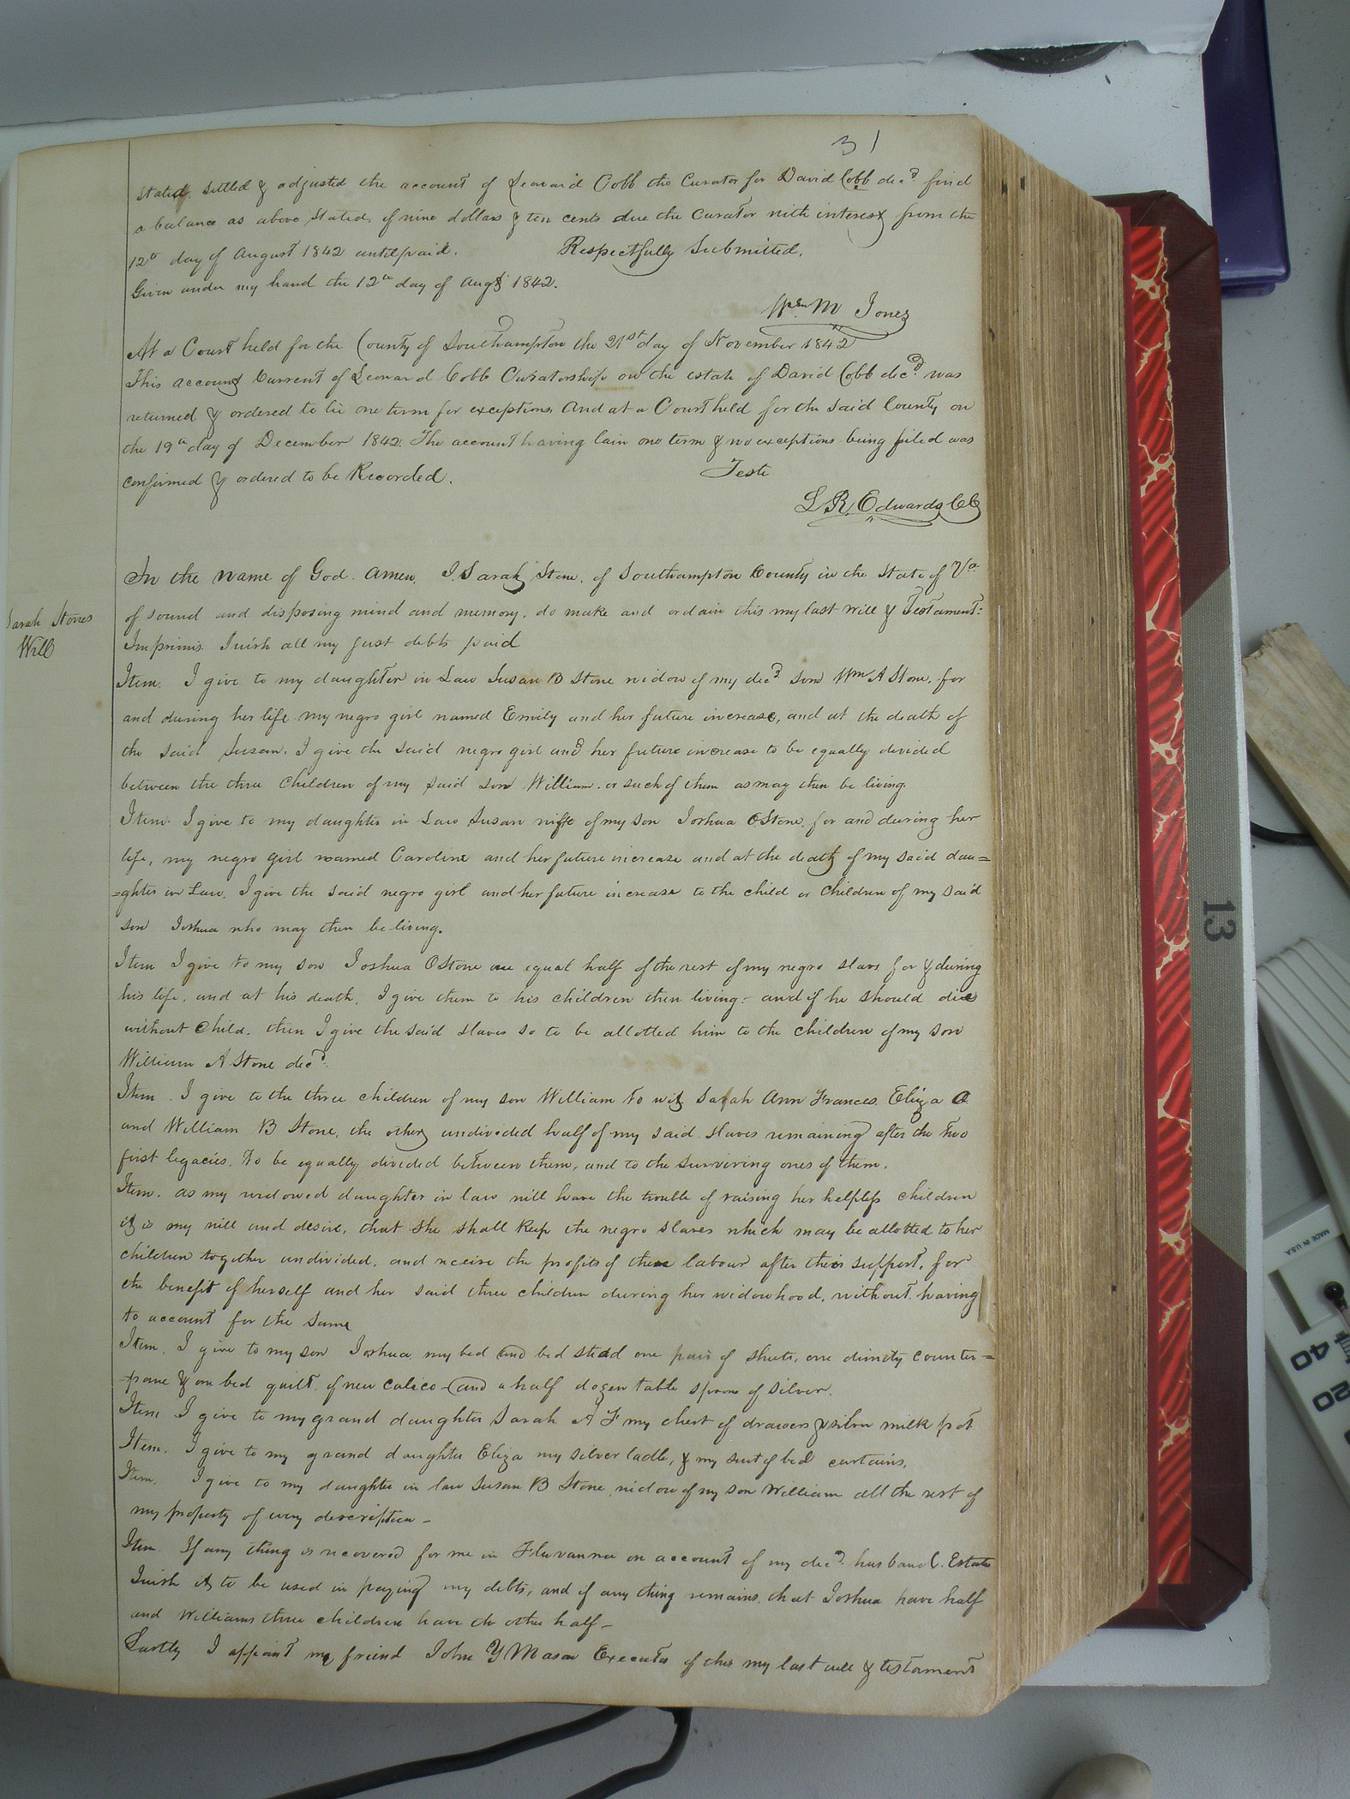 31
stated, settled & adjusted the account of Leonard Cobb the Curator for David Cobb decd find
a balance as above stated, of nine dollars & ten cents due the Curator with interest from the
12th day of August 1842 until paid. Respectfully Submitted,
Given under my hand the 12th day of Augt 1842.
Wm M Jones
At a Court held for the County of Southampton the 21st day of November 1842
This account Current of Leonard Cobb Curatorship on the estate of David Cobb decd was
returned & ordered to lie one term for exceptions And at a Court held for the said County on
the 19th day of December 1842. The account having lain one term & no exceptions being filed was
confirmed & ordered to be Recorded. Teste
L R Edwards CC
Sarah Stones
Will
In the name of God. Amen, I, Sarah Stone, of Southampton County in the State of Va
of sound and disposing mind and memory, do make and ordain this my last will & Testament:
Imprimis I wish all my just debts paid
Item. I give to my daughter in Law Susan B Stone widow of my decd son Wm A Stone, for
and during her life my negro girl named Emily and her future increase, and at the death of
the said Susan, I give the said negro girl and her future increase to be equally divided
between the three Children of my said son William, or such of them as may then be living
Item. I give to my daughter in Law Susan wife of my son Joshua O Stone, for and during her
life, my negro girl named Caroline and her future increase and at the death of my said dau=
=ghter in Law, I give the said negro girl and her future increase to the child or Children of my said
son Joshua who may then be living.
Item I give to my son Joshua O Stone one equal half of the rest of my negro slaves for & during
his life, and at his death, I give them to his children then living: and if he should die
without Child, then I give the said slaves so to be allotted him to the children of my son
William A Stone decd
Item. I give to the three children of my son William to wit Sarah Ann Frances, Eliza A
and William B Stone, the other undivided half of my said slaves remaining after the two
first legacies, to be equally divided between them, and to the surviving ones of them.
Item. as my widowed daughter in law will have the trouble of raising her helpless children
it is my will and desire, that she shall keep the negro slaves which may be allotted to her
children together undivided, and receive the profits of their labour after their support, for
the benefit of herself and her said three children during her widowhood, without having
to account for the same
Item. I give to my son Joshua my bed and bed stead one pair of sheets, one dimity counter=
pane & one bed quilt of new calico - and a half dozen table spoons of silver.
Item I give to my grand daughter Sarah A F my chest of drawers & silver milk pot
Item. I give to my grand daughter Eliza my silver ladle, & my suit of bed curtains.
Item. I give to my daughter in law Susan B Stone, widow of my son William all the rest of
my property of every description -
Item If any thing is recovered for me in Fluvanna on account of my decd husband. Estate
I wish it to be used in paying my debts, and if any thing remains, that Joshua have half
and Williams three children have the other half -
Lastly I appoint my friend John Y Mason Executor of this my last will & testament
13
MADE IN U.S.A.
40
20